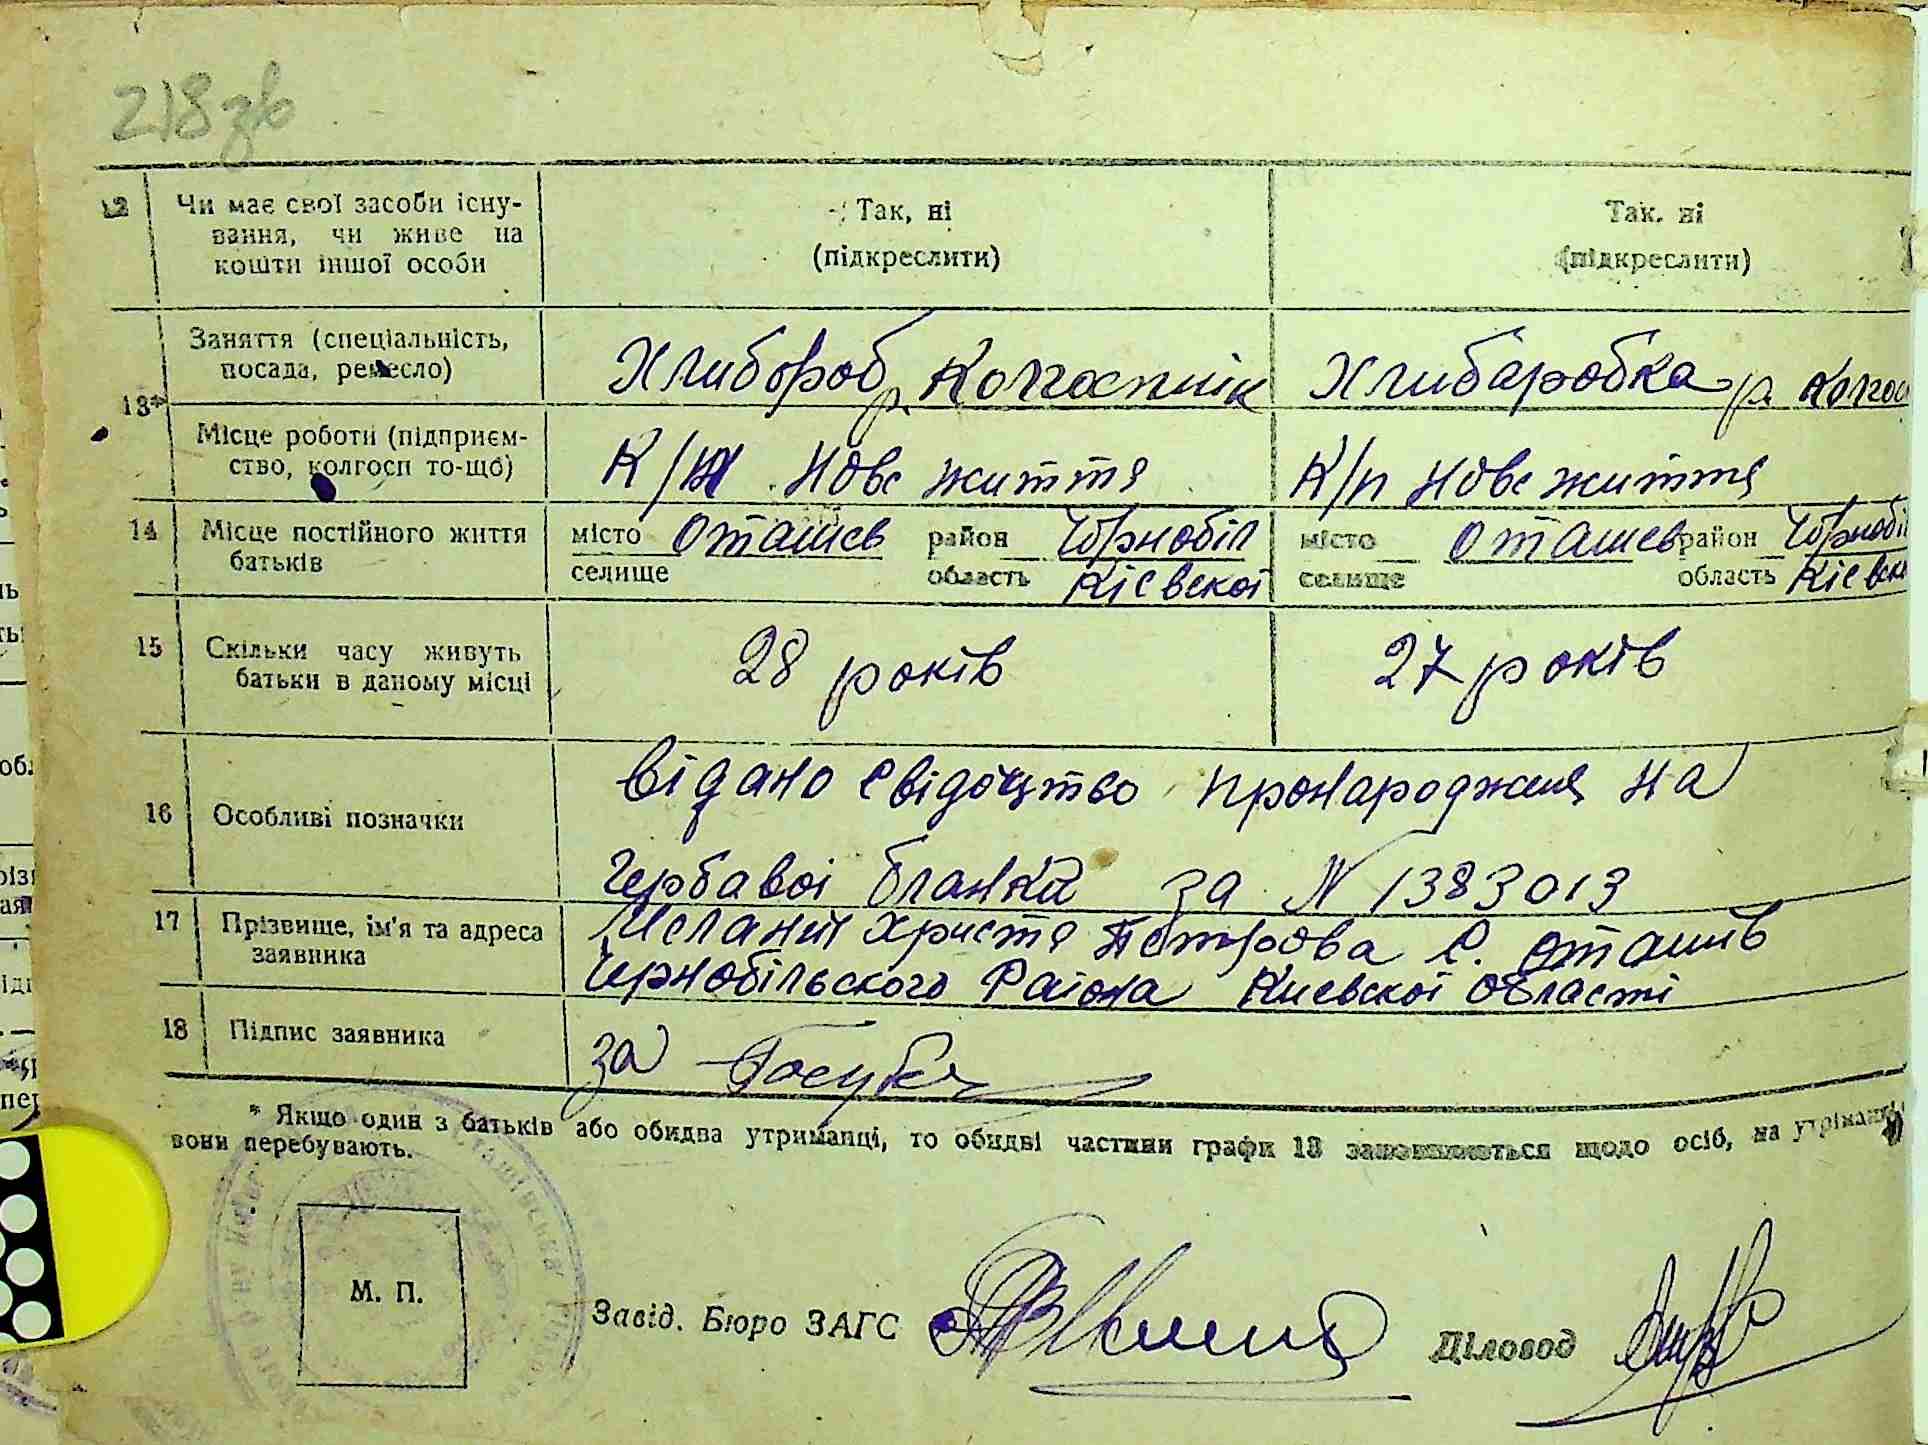 218 зв
12 Чи має свої засоби існу-
вання, чи живе на
кошти іншої особи
Так, ні
(підкреслити)
Так, ні
(підкреслити)
13*
Заняття (спеціальність,
посада, ремесло)
Хлибороб р. Колгоспнік
Хлибаробка р. Колгос
Місце роботи (підприєм-
ство, колгосп то-що)
К/п Нове життя
К/п Нове життя
14 Місце постійного життя
батьків
місто Оташев район Чорнобіл
селище область Кіевскоі
місто Оташев район Чорнобіл
селище область Кіевск
15 Скільки часу живуть
батьки в даному місці
28 років
27 років
16 Особливі позначки
Відано свідоцтво пронароджиня на
гербавоі бланки за N 1383013
17 Прізвище, ім'я та адреса
заявника
Христя Петрова С. Оташив
Чернобільского Раіона Киевскоі Області
18 Підпис заявника
за
* Якщо один з батьків або обидва утриманці, то обидві частини графи 13 заповнюються щодо осіб, на утриманні
вони перебувають.
М. П.
Завід. Бюро ЗАГС
Діловод